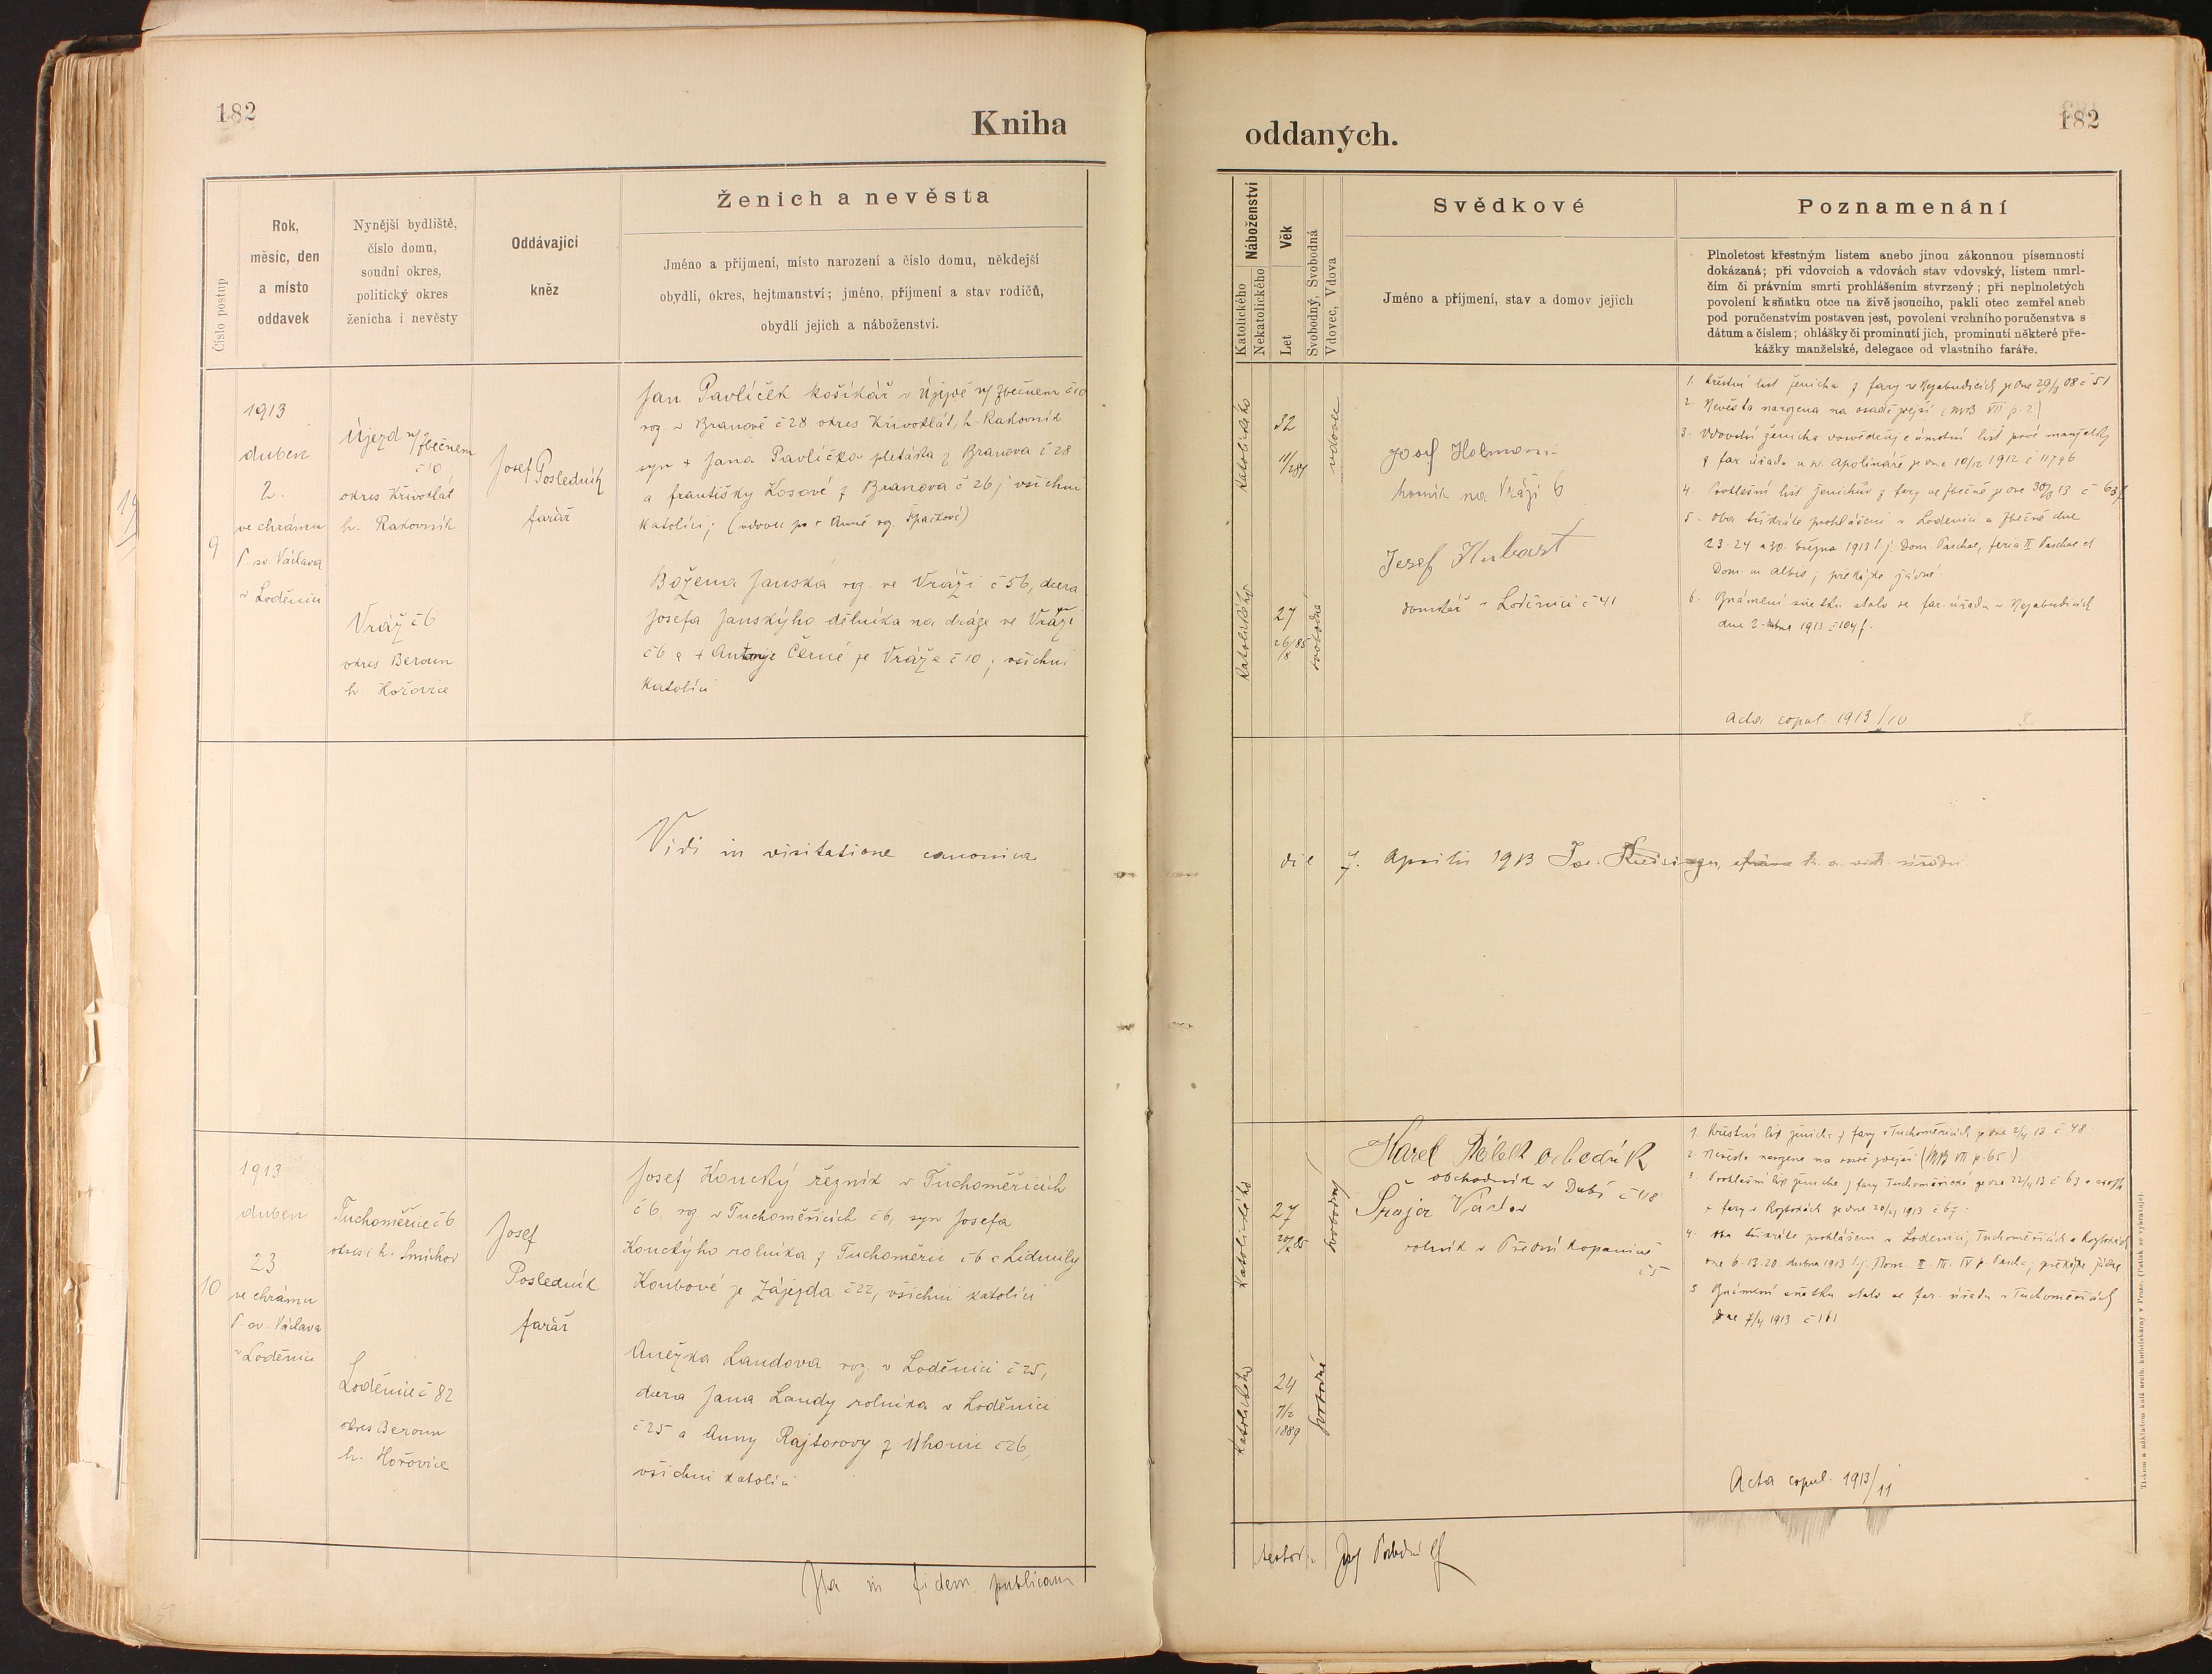 182
Kniha
Číslo postup
Rok,
měsíc, den
a místo
oddavek
Nynější bydliště,
číslo domu,
soudní okres,
politický okres
ženicha i nevěsty
Oddávající
kněz
Ženich a nevěsta
Jméno a příjmení, místo narození a číslo domu, někdejší
obydlí, okres, hejtmanství; jméno, příjmení a stav rodičů,
obydlí jejich a náboženství.
9
1913
duben
2.
ve chrámu
P. sv. Václava
v Loděnici
Újezd n/Zbečnem
č 10
okres Křivoklát
h. Rakovník
Vráž č 6
okres Beroun
h. Hořovice
Josef Posledník
farář
Jan Pavlíček košíkář v Újezdě n/Zbečnem č 10
roz. v Branově č 28 okres Křivoklát, h. Rakovník
syn + Jana Pavlíčka pletářa z Branova č 28
a Františky Kosové z Branova č 26; všichni
katolíci; (vdovec po + Anně roz. Špačkové)
Božena Janská roz. ve Vráži č 56, dcera
Josefa Janskýho dělníka na dráze ve Vráži
č 6 a + Antonie Černé ze Vráže č 10; všichni
katolíci
Vidi in visitatione canonica
10
1913
duben
23
ve chrámu
P. sv. Václava
v Loděnici
Tuchoměřice č 6
okres i h. Smíchov
Loděnice č 82
okres Beroun
h. Hořovice
Josef
Posledník
farář
Josef Koucký řezník v Tuchoměřicích
č 6 roz. v Tuchoměřicích č 6, syn Josefa
Kouckýho rolníka z Tuchoměřic č 6 a Lidmily
Koubové ze Zájezda č 22, všichni katolíci
Anežka Landova roz. v Loděnici č 25,
dcera Jana Landy rolníka v Loděnici
č 25 a Anny Rajtorovy z Úhonic č 26,
všichni katolíci
Ita in fidem publicam
oddaných.
182
Náboženství
Katolického
Nekatolického
Věk
Let
Svobodný, Svobodná
Vdovec, Vdova
Svědkové
Jméno a příjmení, stav a domov jejich
Poznamenání
Plnoletost křestným listem anebo jinou zákonnou písemností
dokázaná; při vdovcích a vdovách stav vdovský, listem umrl-
čím či právním smrti prohlášením stvrzený; při neplnoletých
povolení k sňatku otce na živě jsoucího, pakli otec zemřel aneb
pod poručenstvím postaven jest, povolení vrchního poručenstva s
dátum a číslem; ohlášky či prominutí jich, prominutí některé pře-
kážky manželské, delegace od vlastního faráře.
Katolického
32
vdovec
Josef
horník na Vráži 6
Katolického
27
26/85
svobodná
Josef Hubast
domkář v Loděnici č 41
1. Křestní list ženicha z fary v Nezabudicích ze dne 29/8 08 č 51
2. Nevěsta narozena na osadě zdejší (MB VII p. 2)
3. Vdovství ženicha dosvědčuje úmrtní list prvé manželky
z far. úřadu u sv. Apolináře ze dne 10/12 1912 č 11796
4. Prohlášní list ženichův z fary ve Zbečně ze dne 30/3 13 č 63
5. Oba třikráte prohlášeni v Loděnici a Zbečně dne
23. 24 a 30. března 1913 t. j. Dom. Paschae, feria II Paschae et
Dom. in albis; překážky žádné
6. Oznámení sňatku stalo se far. úřadu v Nezabudicích
dne 2. dubna 1913 č 104
Acta copul. 1913/10
die 7. Aprilis 1913
Katolického
27
svobodný
Karel
obchodník v Dubí č 118
Šrajer Václav
rolník v Přední Kopanině
č 5
Katolického
24
7/2
1889
svobodná
1. Křestní list ženicha z fary v Tuchoměřicích ze dne 2/4 13 č 48
2. Nevěsta narozena na osadě zdejší (MB VII p. 65)
3. Prohlášní list ženicha z fary Tuchoměřické ze dne 22/4 13 č 63
z fary v Roztokách ze dne 20/4 1913 č 67
4. Oba třikráte prohlášeni v Loděnici, Tuchoměřicích a Roztokách
dne 6. 13. 20. dubna 1913 t. j. Dom. II. III. IV p. Pascha; překážky žádné
5 Oznámení sňatku stalo se far. úřadu v Tuchoměřicích
dne 7/4 1913 č 161
Acta copul. 1913/11
testor